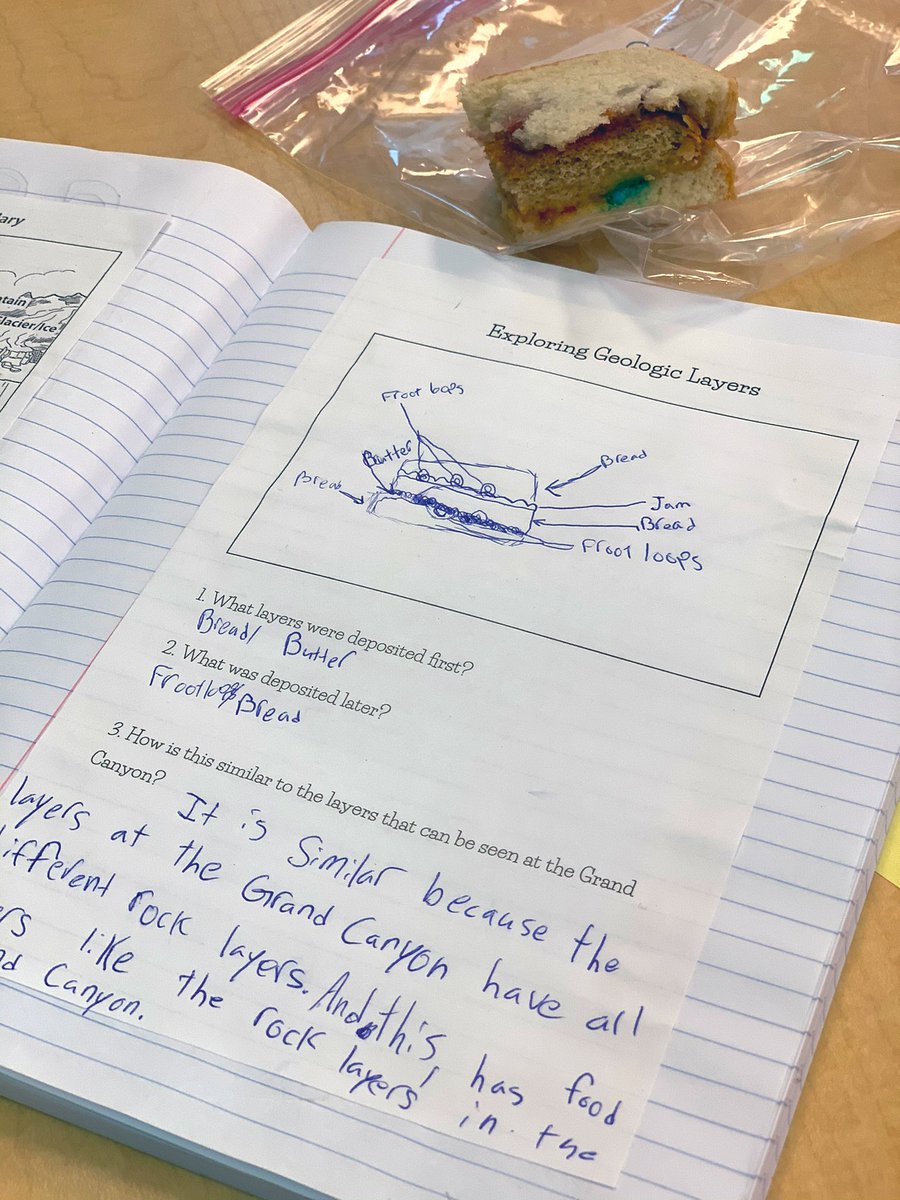 ary
ntain
Glacier/Ice
Exploring Geologic Layers
Froot loops
Butter
Bread
Bread
Jam
Bread
Froot loops
1. What layers were deposited first?
Bread/ Butter
2. What was deposited later?
Froot loops/Bread
3. How is this similar to the layers that can be seen at the Grand
Canyon?
It is Similar because the
layers at the Grand Canyon have all
ifferent rock layers. And this, has food
ers like the rock layers in the
nd Canyon.